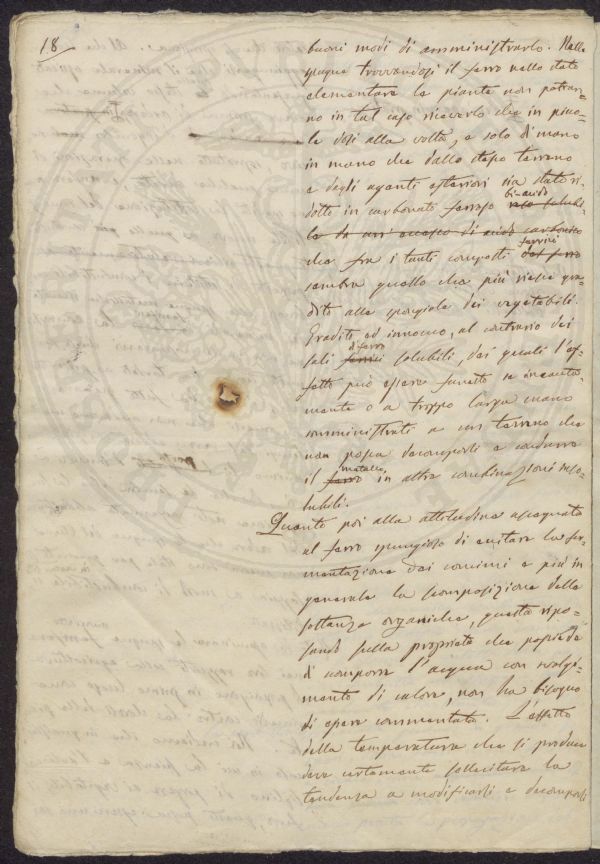 18
buoni modi di amministrarlo. Nella
spugna trovandosi il ferro nello stato
elementare le piante non potran-
no in tal caso riceverlo che in picco-
le dosi alla volta, e solo di mano
in mano che dallo stesso terreno
e dagli agenti esteriori sia stato ri-
dotto in carbonato ferroso bi-acido
la da un eccesso di acido carbonico
che fra i tanti composti ferrici del ferro
sembra quello che più riesce gra-
dito alle spongiole dei vegetabili.
Gradito ed innocuo, al contrario dei
sali di ferro ferrici solubili, dei quali l'ef-
fetto può essere funesto se incauta-
mente o a troppo larga mano
somministrati a un terreno che
non possa decomporli e condurre
il ferro metallo, in altre combinazioni inso-
lubili.
Quanto poi alla attitudine assegnata
al ferro spugnoso di eccitare la fer-
mentazione dei concimi e più in
generale la scomposizione delle
sostanze organiche, questa ripo-
sando sulla proprietà che possiede
di scomporre l'acqua con svolgi-
mento di calore, non ha bisogno
di essere commentata. L'effetto
della temperatura che si produce
deve certamente sollecitare la
tendenza a modificarsi e decomporsi